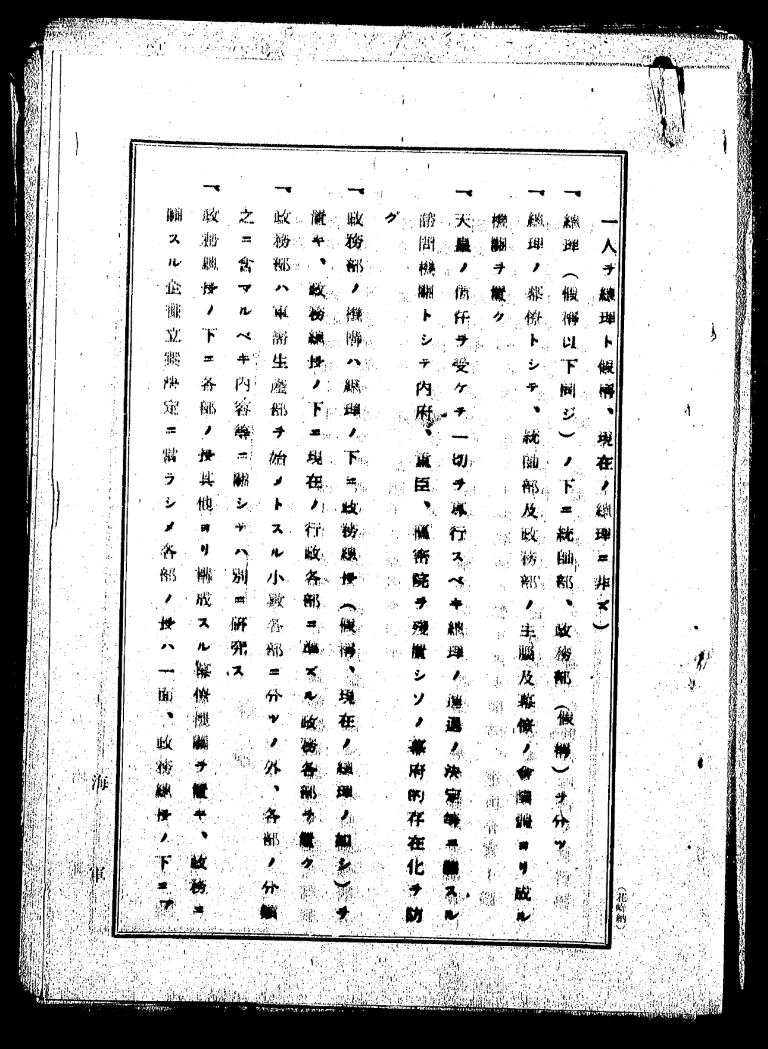 一人ヲ總理ト假稱、現在ノ總理ニ非ズ）
一、總理（假稱以下同ジ）ノ下ニ統帥部、政務部（假稱）ヲ分ツ
一、總理ノ幕僚トシテ、統帥部及政務部ノ主腦及幕僚ノ會議ヨリ成ル
機關ヲ置ク
一、天皇ノ信任ヲ受ケテ一切ヲ專行スベキ總理ノ選ノ決定等ニ關スル
諮問機關トシテ內府、重臣、樞密院ヲ殘置シソノ幕府的存在化ヲ防
グ
一、政務部ノ機構ハ總理ノ下ニ政務總裁（假稱、現在ノ總理ノ如シ）ヲ
置キ、政務總裁ノ下ニ現在ノ行政各部ニ準ズル政務各部ヲ置ク
一、政務部ハ軍需生產部ヲ始メトスル小數各部ニ分ツノ外、各部ノ分類
之ニ含マルベキ內容等ニ關シテハ別ニ研究ス
一、政務總裁ノ下ニ各部ノ裁其他ヨリ構成スル幕僚機關ヲ置キ、政務ニ
關スル企畫立案決定ニ當ラシメ各部ノ裁ハ一面、政務總裁ノ下ニア
海軍